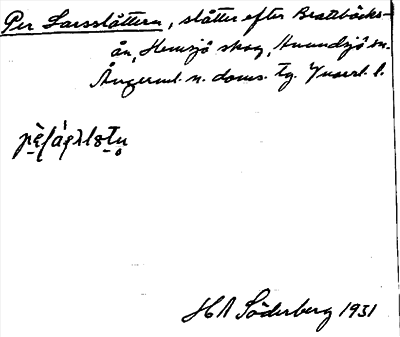 Per Larsslåttern, slåtter efter Brattbäcks-
ån, Hemsjö skog, Anundsjö sn.
Ångerml. n. doms. tg. Vnorrl. l.
HA Söderberg 1931